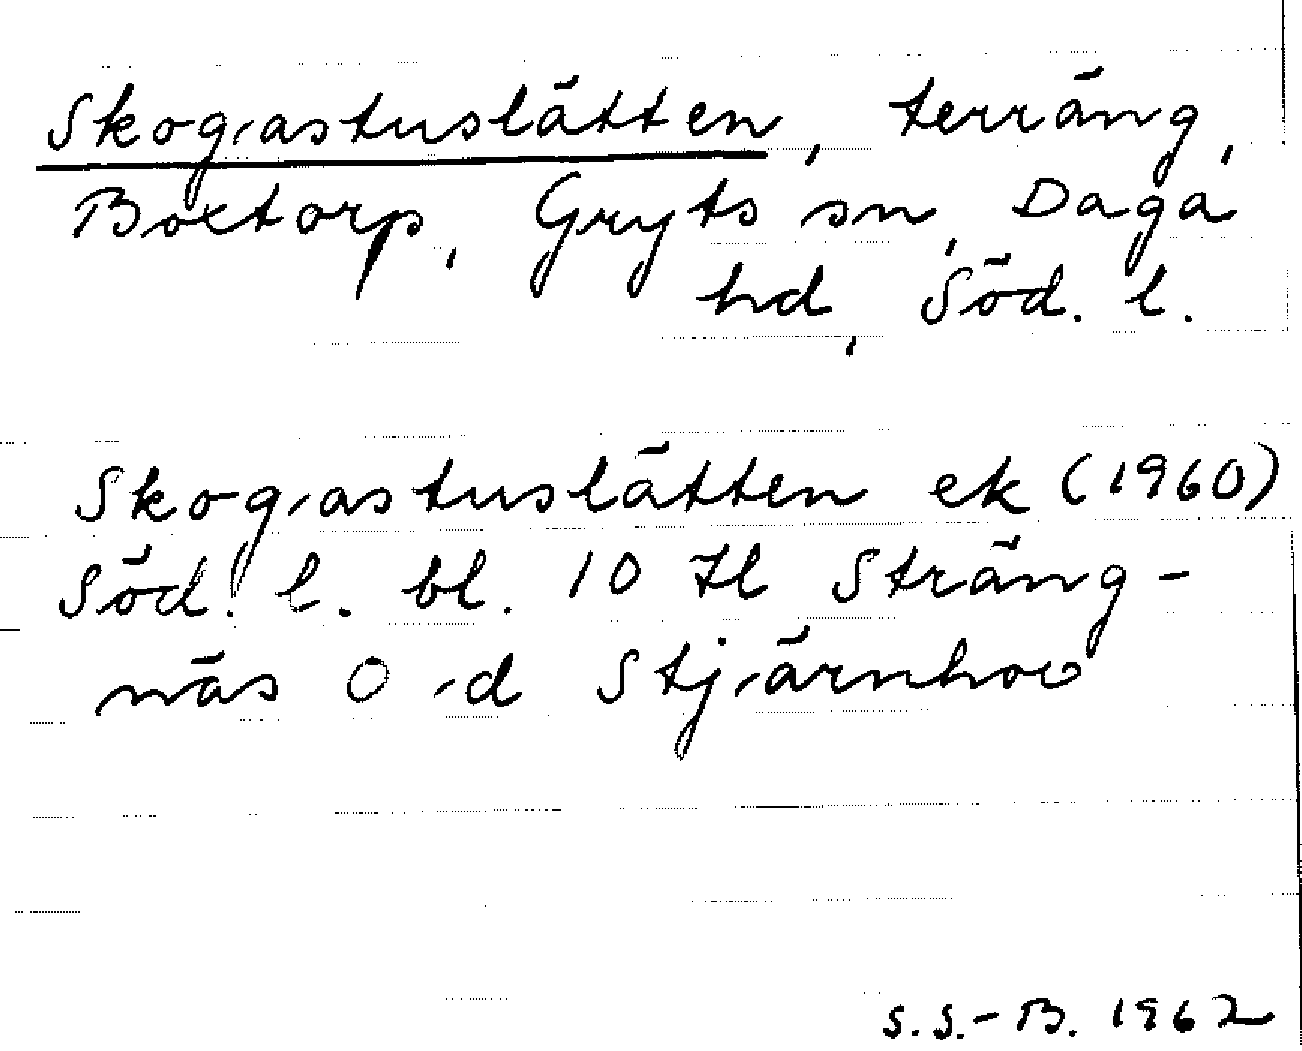 Skogastuslätten, terräng,
Boktorp, Gryts sn, Daga
hd, Söd. l.
Skogastuslätten ek (1960)
Söd. l. bl. 10 Il Sträng-
näs O-d Stjärnhov
S.S.-B. 1962